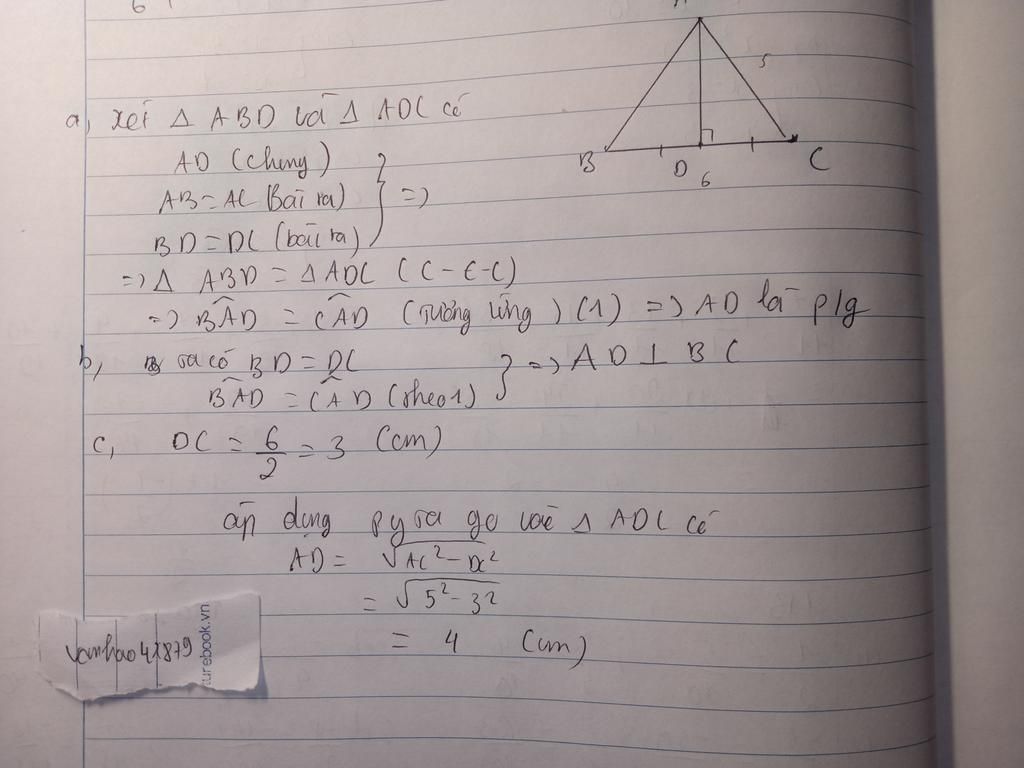 A
5
B
D
C
6
a, Xét Δ ABD và Δ ADC có
AD (chung)
AB = AC (Bài ra)
BD = DC (bài ra)
} =>
=> Δ ABD = Δ ADC (C-C-C)
=> BÂD = CÂD (Tương ứng) (1) => AD là p/g
b, Ta có BD = DC
BÂD = CÂD (theo 1)
} => AD ⊥ BC
c, DC = 6/2 = 3 (cm)
áp dụng pytago vào Δ ADC có
AD = √AC² - DC²
= √5² - 3²
= 4 (cm)
vanhao41879
urebook.vn